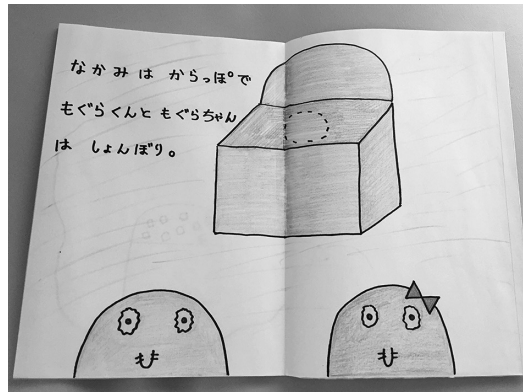 なかみ は からっぽで
もぐらくんと もぐらちゃん
は しょんぼり。